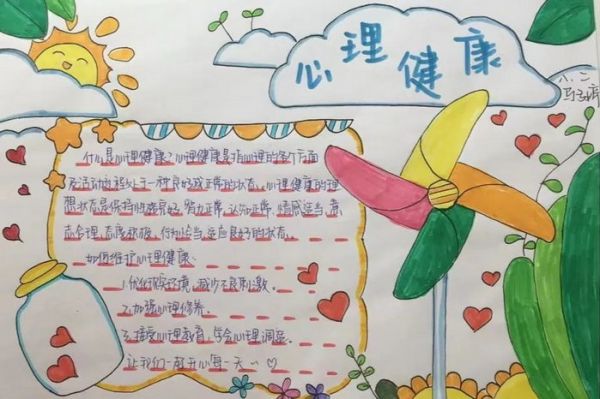 心理健康
八、二
什么是心理健康?心理健康是指心理的各个方面
及活动过程处于一种良好或正常的状态。心理健康的理
想状态是保持性格完好、智力正常、认知正确、情感适当、意
志合理、态度积极、行为恰当、适应良好的状态。
如何维护心理健康:
1.优化现实环境,减少不良刺激。
2.加强心理修养。
3.接受心理教育,学会心理调适。
让我们一起开心每一天~~♡